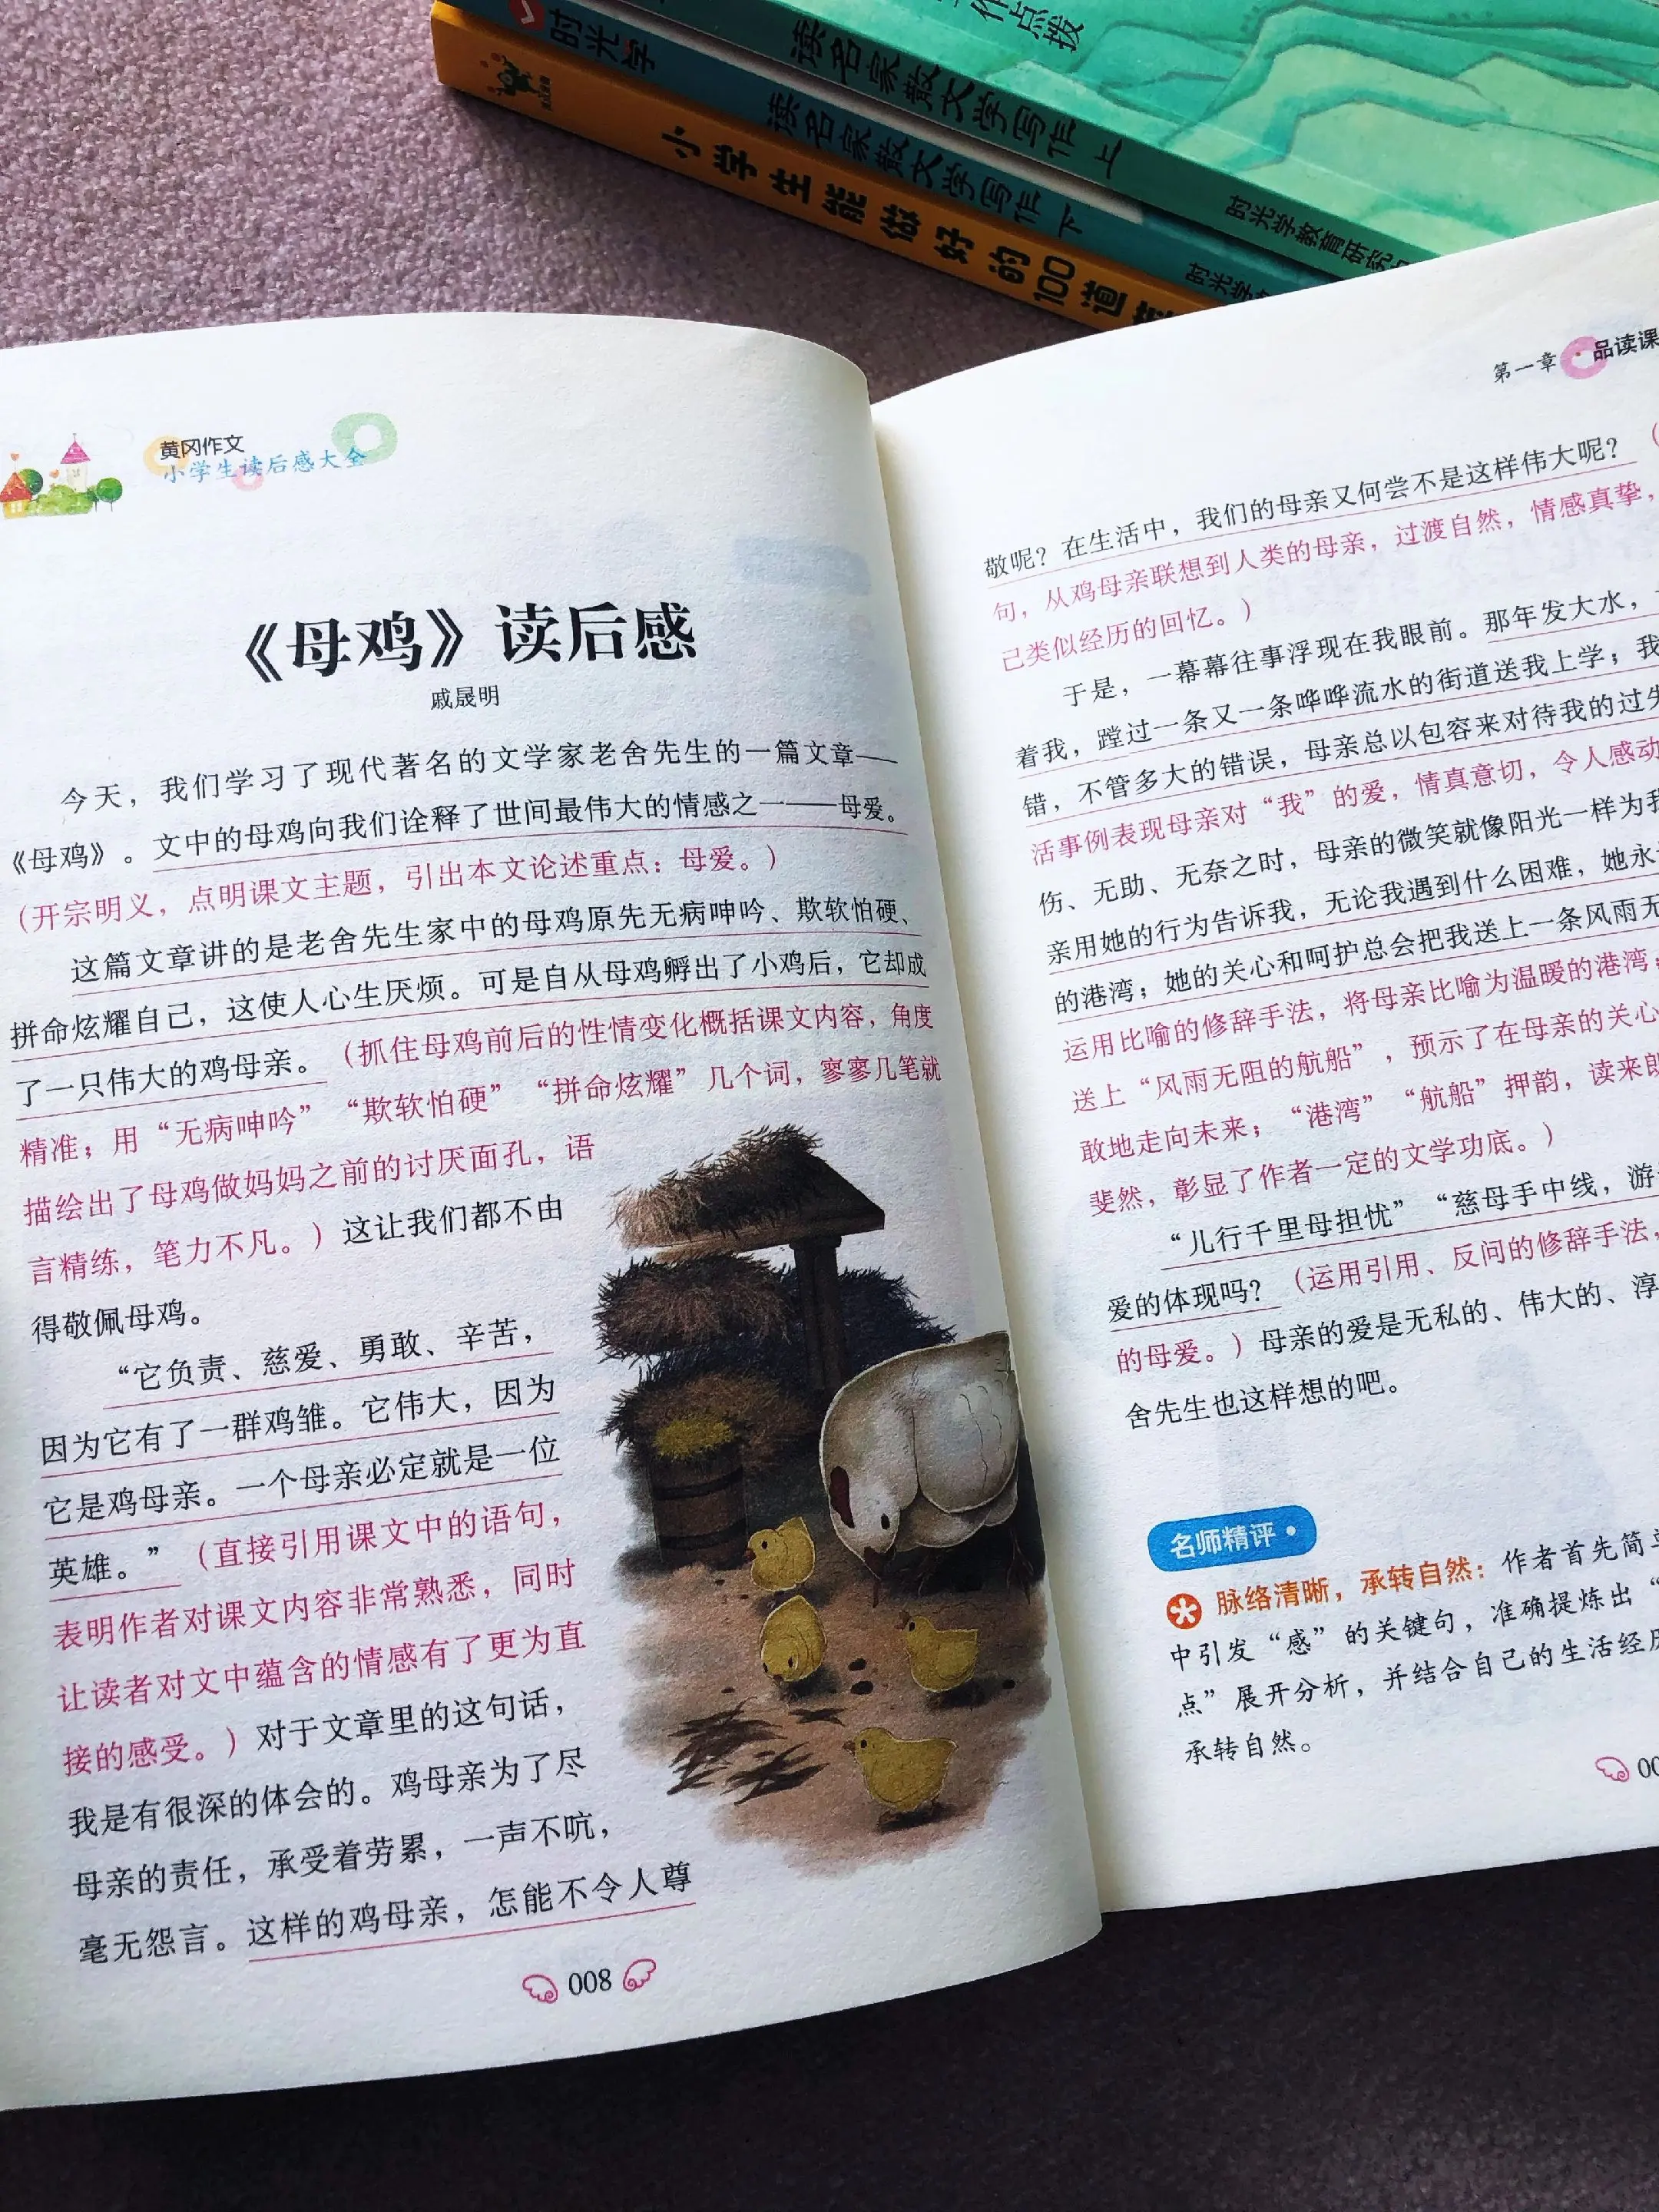 作点拨
读名家散文学写作 上
时光学教育研究
时光学
读名家散文学写作 下
时光学
小学生能做好的100道
黄冈作文
小学生读后感大全
《母鸡》读后感
戚晟明
今天，我们学习了现代著名的文学家老舍先生的一篇文章——
《母鸡》。文中的母鸡向我们诠释了世间最伟大的情感之一——母爱。
（开宗明义，点明课文主题，引出本文论述重点：母爱。）
这篇文章讲的是老舍先生家中的母鸡原先无病呻吟、欺软怕硬、
拼命炫耀自己，这使人心生厌烦。可是自从母鸡孵出了小鸡后，它却成
了一只伟大的鸡母亲。（抓住母鸡前后的性情变化概括课文内容，角度
精准；用“无病呻吟”“欺软怕硬”“拼命炫耀”几个词，寥寥几笔就
描绘出了母鸡做妈妈之前的讨厌面孔，语
言精练，笔力不凡。）这让我们都不由
得敬佩母鸡。
“它负责、慈爱、勇敢、辛苦，
因为它有了一群鸡雏。它伟大，因为
它是鸡母亲。一个母亲必定就是一位
英雄。”（直接引用课文中的语句，
表明作者对课文内容非常熟悉，同时
让读者对文中蕴含的情感有了更为直
接的感受。）对于文章里的这句话，
我是有很深的体会的。鸡母亲为了尽
母亲的责任，承受着劳累，一声不吭，
毫无怨言。这样的鸡母亲，怎能不令人尊
008
第一章 品读课
敬呢？在生活中，我们的母亲又何尝不是这样伟大呢？（
句，从鸡母亲联想到人类的母亲，过渡自然，情感真挚，
己类似经历的回忆。）
于是，一幕幕往事浮现在我眼前。那年发大水，
着我，蹚过一条又一条哗哗流水的街道送我上学；我
错，不管多大的错误，母亲总以包容来对待我的过失
活事例表现母亲对“我”的爱，情真意切，令人感动
伤、无助、无奈之时，母亲的微笑就像阳光一样为我
亲用她的行为告诉我，无论我遇到什么困难，她永
的港湾；她的关心和呵护总会把我送上一条风雨无
运用比喻的修辞手法，将母亲比喻为温暖的港湾；
送上“风雨无阻的航船”，预示了在母亲的关心
敢地走向未来；“港湾”“航船”押韵，读来朗
斐然，彰显了作者一定的文学功底。）
“儿行千里母担忧”“慈母手中线，游
爱的体现吗？（运用引用、反问的修辞手法，
的母爱。）母亲的爱是无私的、伟大的、淳
舍先生也这样想的吧。
名师精评
脉络清晰，承转自然：作者首先简单
中引发“感”的关键句，准确提炼出“
点”展开分析，并结合自己的生活经历
承转自然。
00